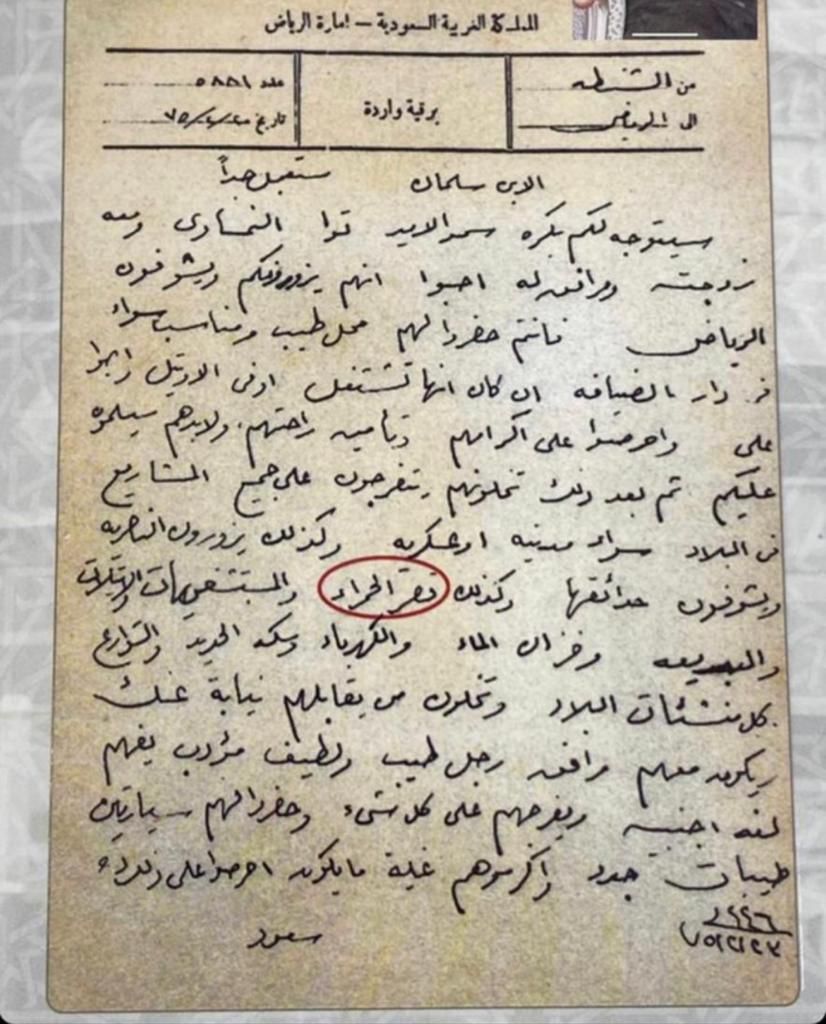 المملكة العربية السعودية - إمارة الرياض
من الشنطه
الى الرياض
برقية واردة
عدد ٥٨٨١
تاريخ
الابن سلمان مستعجل جداً
سيتوجه لكم بكره سمو الامير النمساوى ومعه
زوجته ومرافق له احبوا انهم يزورونكم ويشوفون
الرياض فانتم حضروا لهم محل طيب ومناسب سواء
فى دار الضيافه ان كان انها تشتغل او فى الاوتيل
على واحرصوا على اكرامهم وتأمين راحتهم ولابدهم يسلموا
عليكم ثم بعد ذلك تخلونهم يتفرجون على جميع المشاريع
فى البلاد سواء مدنيه او عسكريه وكذلك يزورون الناصريه
ويشوفون حدائقها وكذلك قصر الحمراء والمستشفيات
وخزان الماء والكهرباء وسكة الحديد والشوارع
كل منشئات البلاد وتخلون من يقابلهم نيابة عنك
ويكون معهم مرافق رجل طيب ولطيف مؤدب يفهم
لغه اجنبيه ويفرجهم على كل شىء وحضروا لهم سيارتين
طيبات جدد واكرموهم غاية ما يكون احرصوا على ذلك
سعود